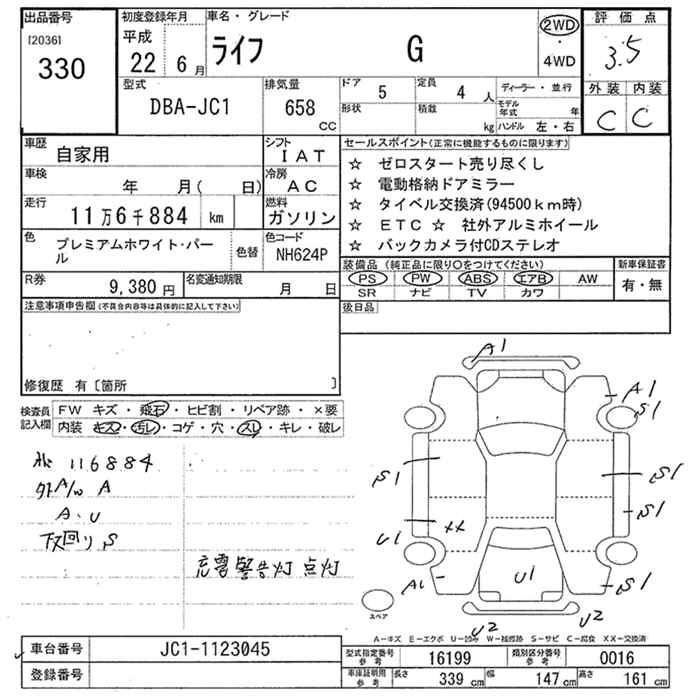 出品番号
[2036]
330
初度登録年月
平成
22年 6月
車名・グレード
ライフ G
2WD
・
4WD
評価点
3.5
外装 内装
C C
型式
DBA-JC1
排気量
658
CC
ドア
5
形状
定員
4 人
積載
kg
ディーラー・並行
モデル年式 年
ハンドル 左・右
車歴
自家用
シフト
IAT
車検
年 月( 日)
冷房
AC
走行
11万6千884 km
燃料
ガソリン
色
プレミアムホワイト・パール
色替
色コード
NH624P
R券
9,380円
名変通知期限
月 日
セールスポイント(正常に機能するものに限ります)
☆ ゼロスタート売り尽くし
☆ 電動格納ドアミラー
☆ タイベル交換済(94500km時)
☆ ETC ☆ 社外アルミホイール
☆ バックカメラ付CDステレオ
装備品(純正品に限り〇をつけてください)
PS PW ABS エアB AW
SR ナビ TV カワ
新車保証書
有・無
後日品
注意事項申告欄(不具合内容等は具体的に記入して下さい)
修復歴 有〔箇所 〕
検査員
記入欄
FW キズ・飛石・ヒビ割・リペア跡・×要
内装 キズ・汚レ・コゲ・穴・スレ・キレ・破レ
116884
外A/W A
A.U
下回り S
充電警告灯 点灯
A1
A1
S1
S1
S1
S1
U1
XX
A1
U1
S1
U2
U2
スペア
A―キズ E―エクボ U―凹み W―補修跡 S―サビ C―腐食 XX―交換済
車台番号
JC1-1123045
登録番号
型式指定番号
参考
16199
類別区分番号
参考
0016
車庫証明用
参考
長さ 339 cm
幅 147 cm
高さ 161 cm